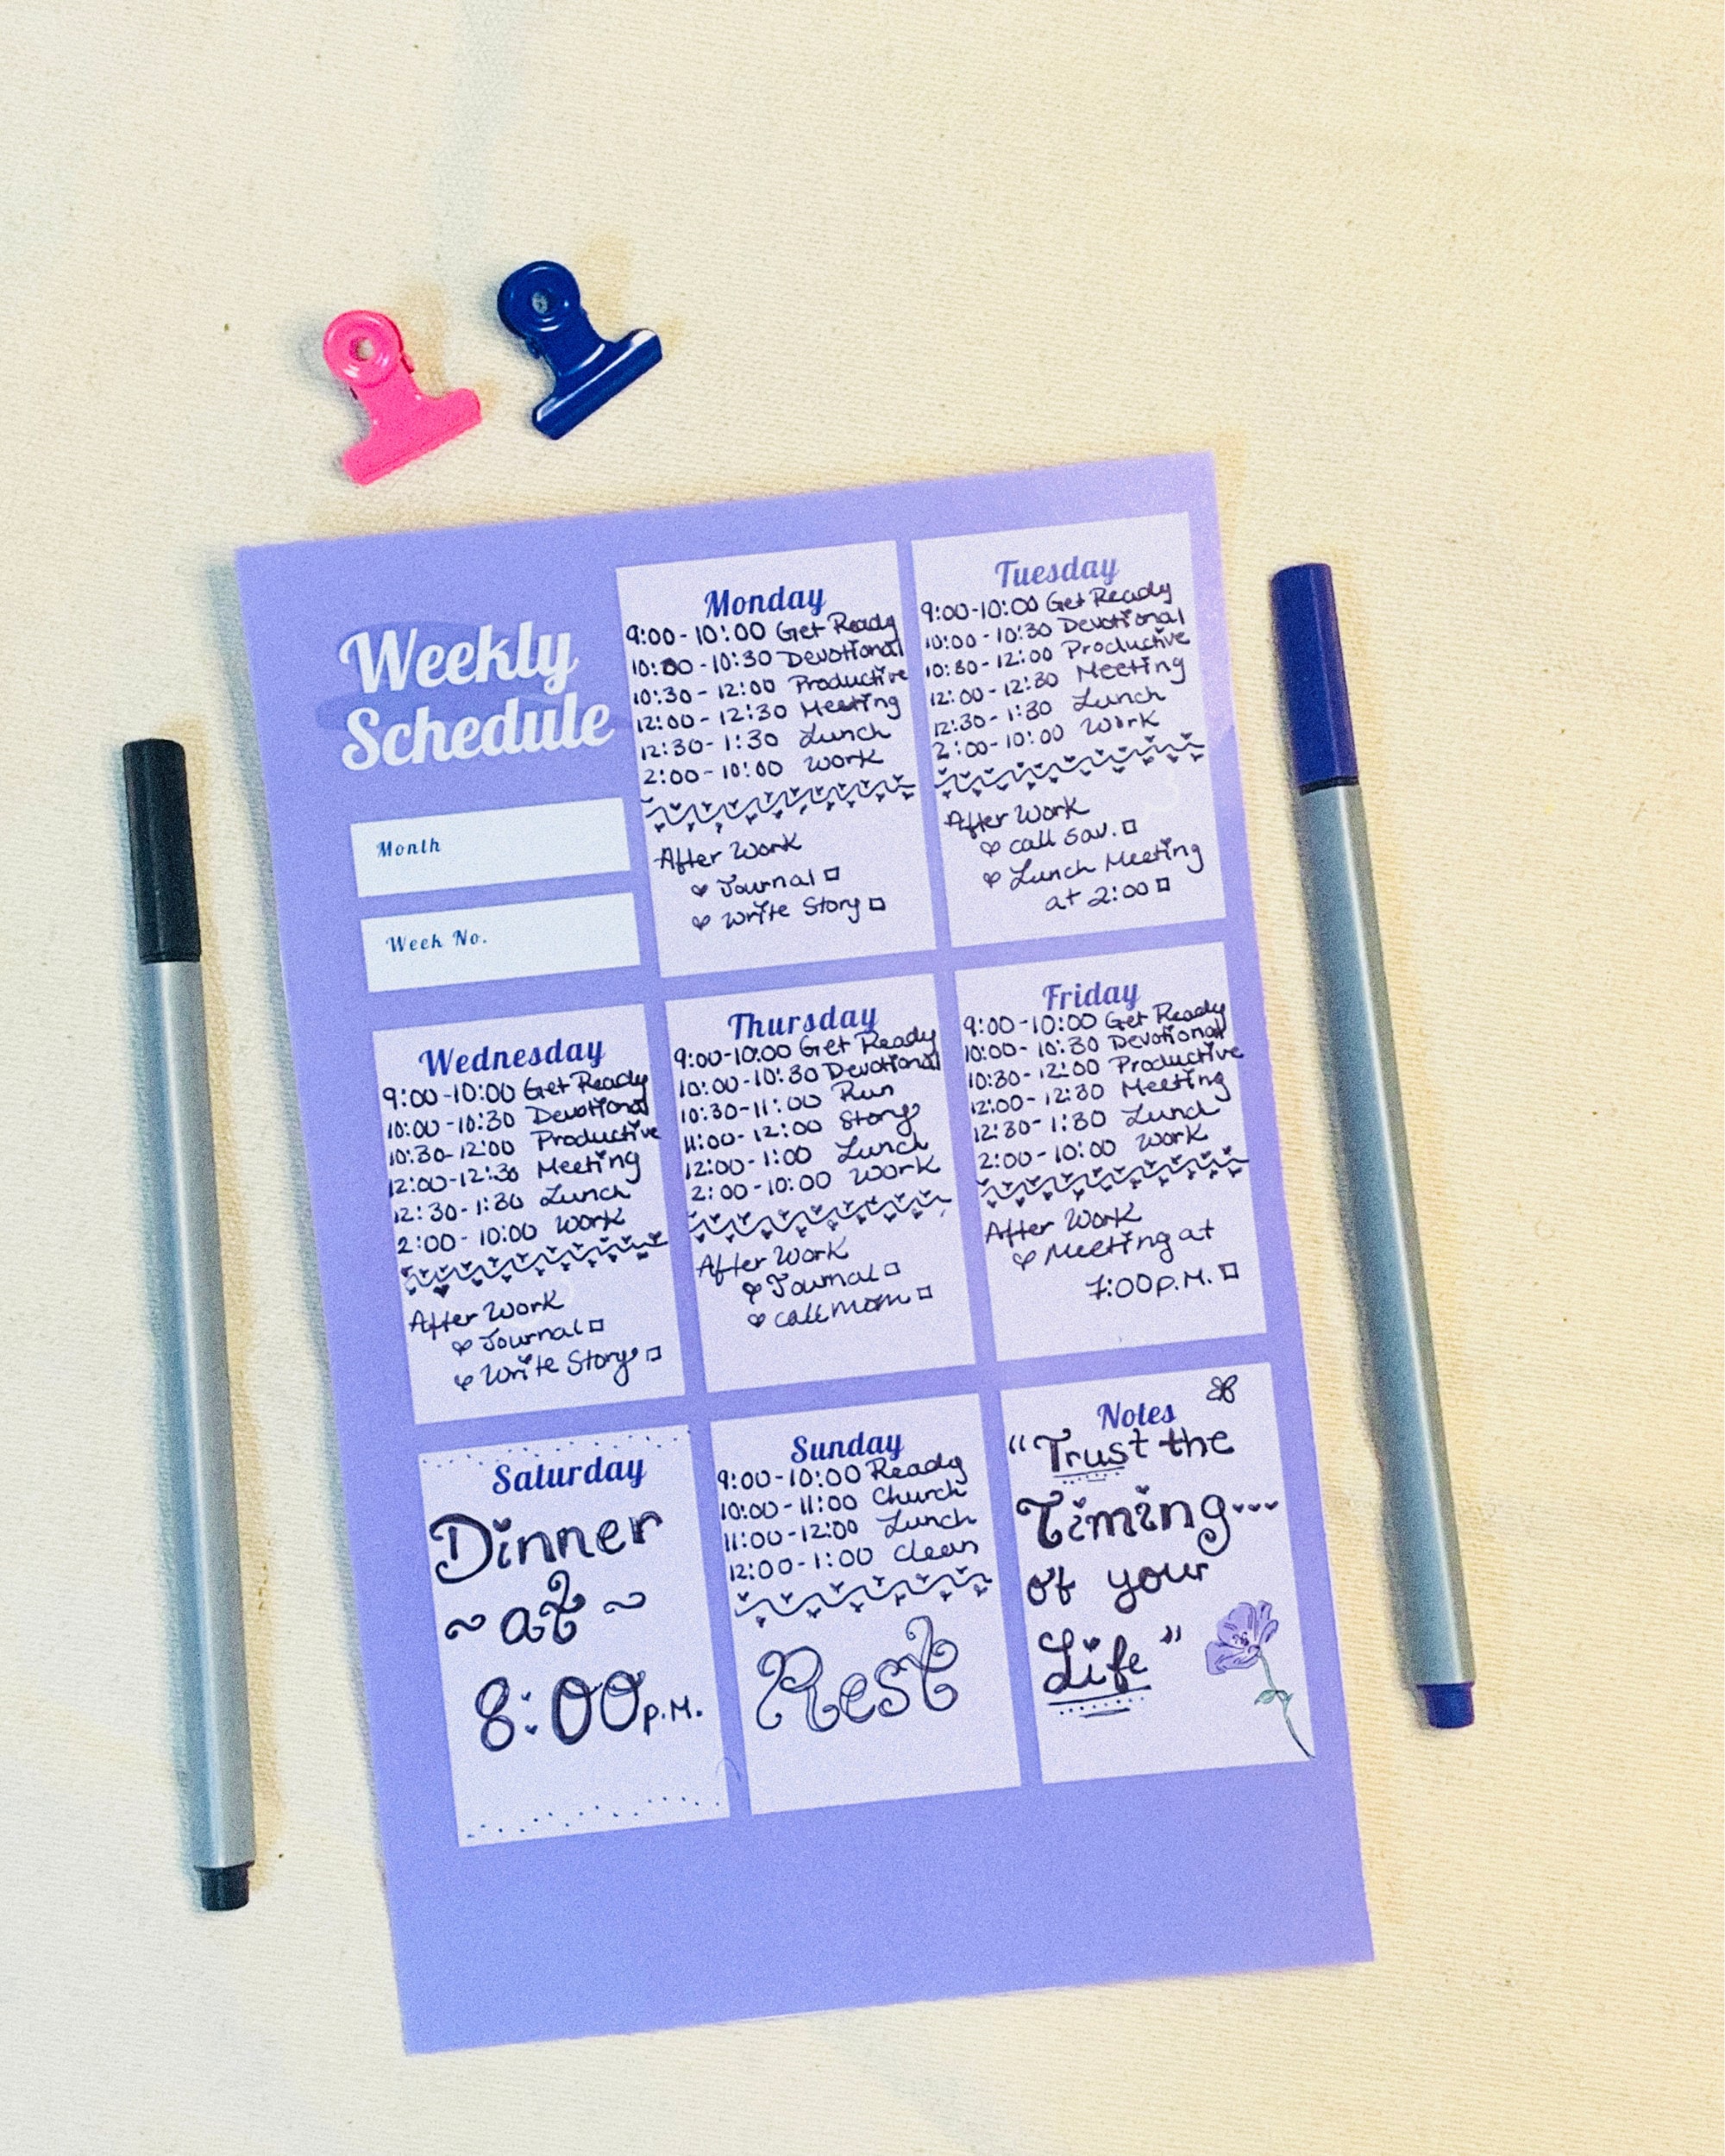 Weekly
Schedule
Month
Week No.
Monday
9:00-10:00 Get Ready
10:00-10:30 Devotional
10:30-12:00 Productive
12:00-12:30 Meeting
12:30-1:30 Lunch
2:00-10:00 Work
After Work
Journal
Write Story
Tuesday
9:00-10:00 Get Ready
10:00-10:30 Devotional
10:30-12:00 Productive
12:00-12:30 Meeting
12:30-1:30 Lunch
2:00-10:00 Work
After Work
call Sav.
Lunch Meeting
at 2:00
Wednesday
9:00-10:00 Get Ready
10:00-10:30 Devotional
10:30-12:00 Productive
12:00-12:30 Meeting
12:30-1:30 Lunch
2:00-10:00 Work
After Work
Journal
Write Story
Thursday
9:00-10:00 Get Ready
10:00-10:30 Devotional
10:30-11:00 Run
11:00-12:00 Story
12:00-1:00 Lunch
2:00-10:00 Work
After Work
Journal
call mom
Friday
9:00-10:00 Get Ready
10:00-10:30 Devotional
10:30-12:00 Productive
12:00-12:30 Meeting
12:30-1:30 Lunch
2:00-10:00 Work
After Work
Meeting at
7:00p.M.
Saturday
Dinner
~at~
8:00p.M.
Sunday
9:00-10:00 Ready
10:00-11:00 Church
11:00-12:00 Lunch
12:00-1:00 Clean
Rest
Notes
"Trust the
Timing...
of your
Life"